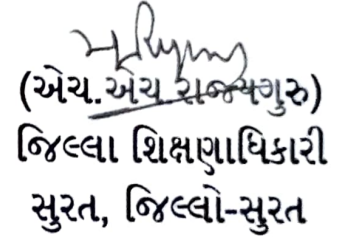 (એચ.એચ રાજ્યગુરુ)
જિલ્લા શિક્ષણાધિકારી
સુરત, જિલ્લો-સુરત